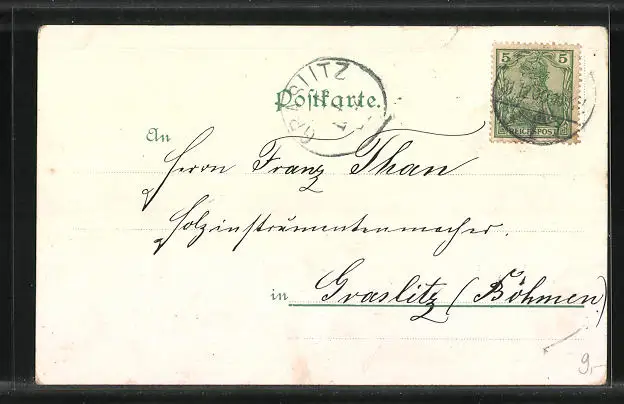 GRASLITZ
5 5
REICHSPOST
Postkarte.
An
Herrn Franz Than
Holzinstrumentenmacher.
in Graslitz (Böhmen)
9,-